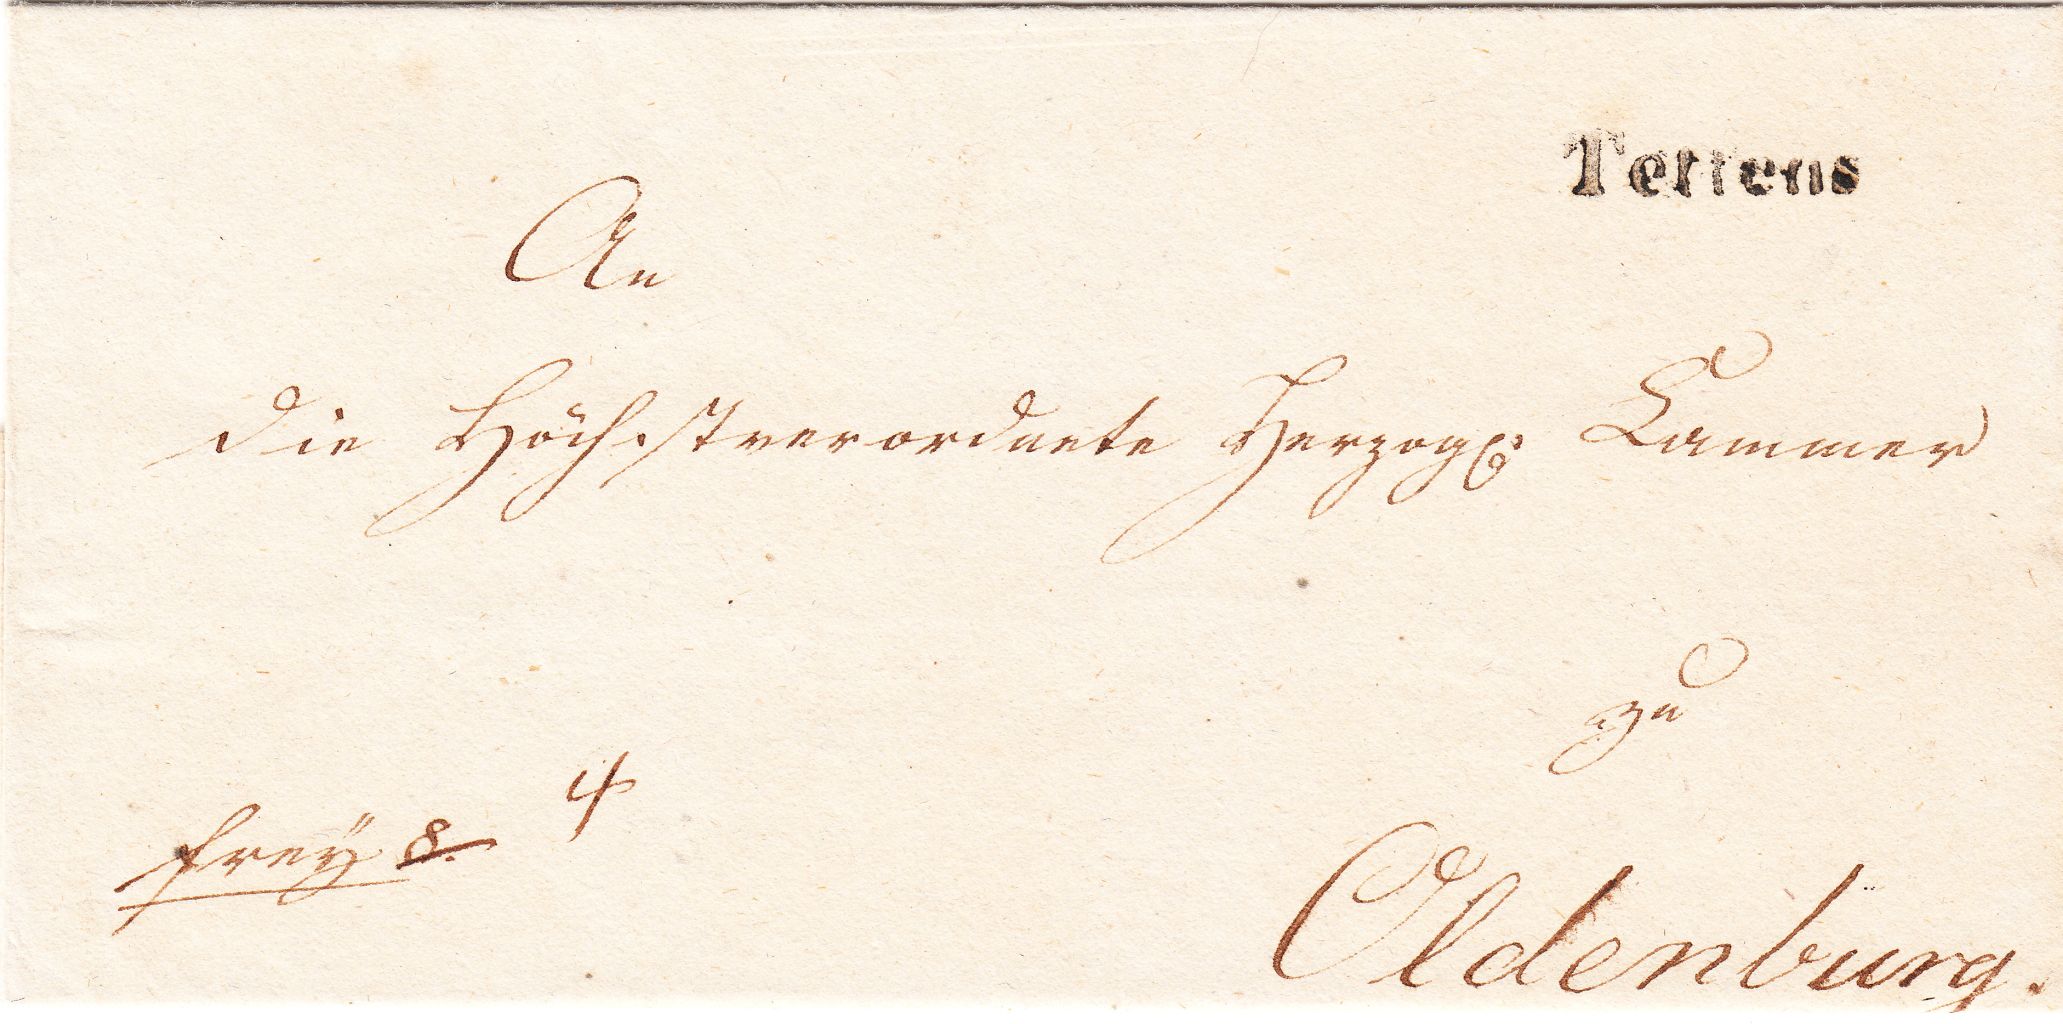 Tettens
An
die Höchstverordnete Herzogl. Cammer
zu
4
freÿ 8.
Oldenburg.